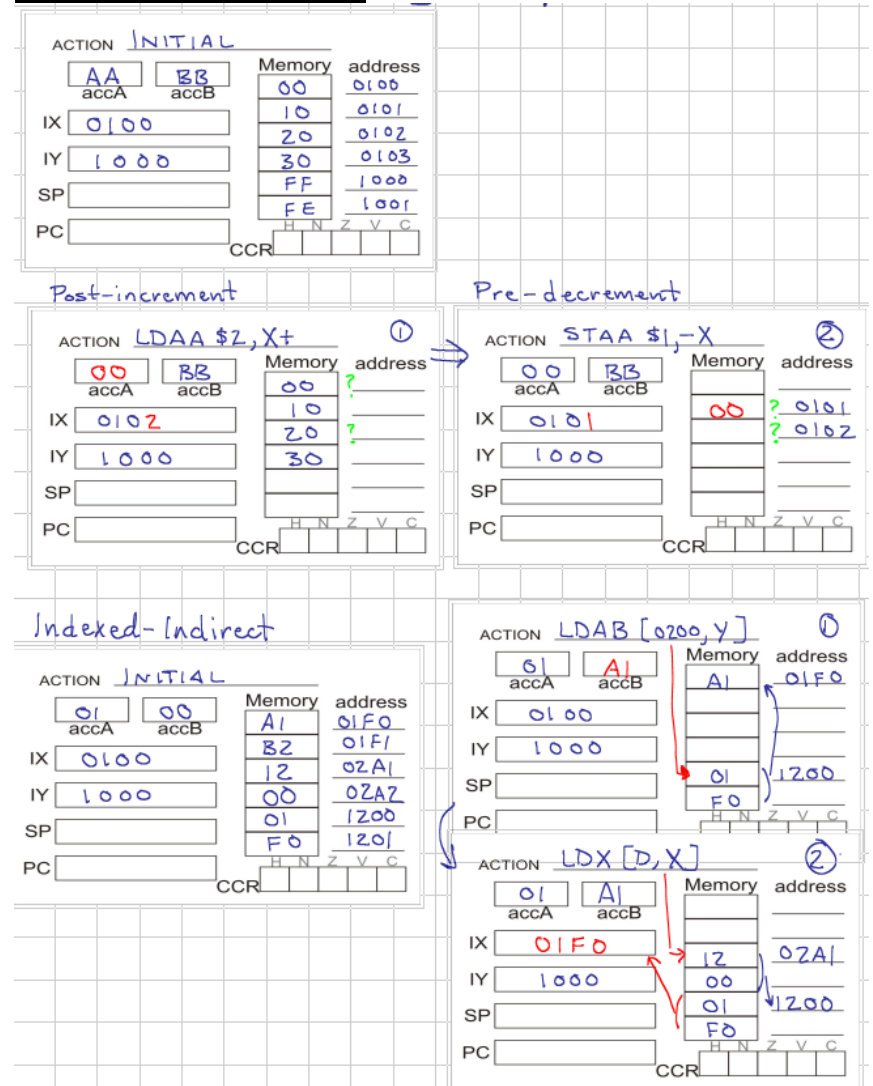 ACTION INITIAL
AA BB
accA accB
IX 0100
IY 1000
SP
PC
Memory address
00 0100
10 0101
20 0102
30 0103
FF 1000
FE 1001
H N Z V C
CCR
Post-increment
ACTION LDAA $2, X+ ①
00 BB
accA accB
IX 0102
IY 1000
SP
PC
Memory address
00 ?
10
20 ?
30
H N Z V C
CCR
Pre-decrement
ACTION STAA $1, -X ②
00 BB
accA accB
IX 0101
IY 1000
SP
PC
Memory address
00 ? 0101
? 0102
H N Z V C
CCR
Indexed-Indirect
ACTION INITIAL
01 00
accA accB
IX 0100
IY 1000
SP
PC
Memory address
A1 01F0
B2 01F1
12 02A1
00 02A2
01 1200
F0 1201
H N Z V C
CCR
ACTION LDAB [0200, Y] ①
01 A1
accA accB
IX 0100
IY 1000
SP
PC
Memory address
A1 01F0
01 1200
F0
H N Z V C
ACTION LDX [D, X] ②
01 A1
accA accB
IX 01F0
IY 1000
SP
PC
Memory address
12 02A1
00
01 1200
F0
H N Z V C
CCR